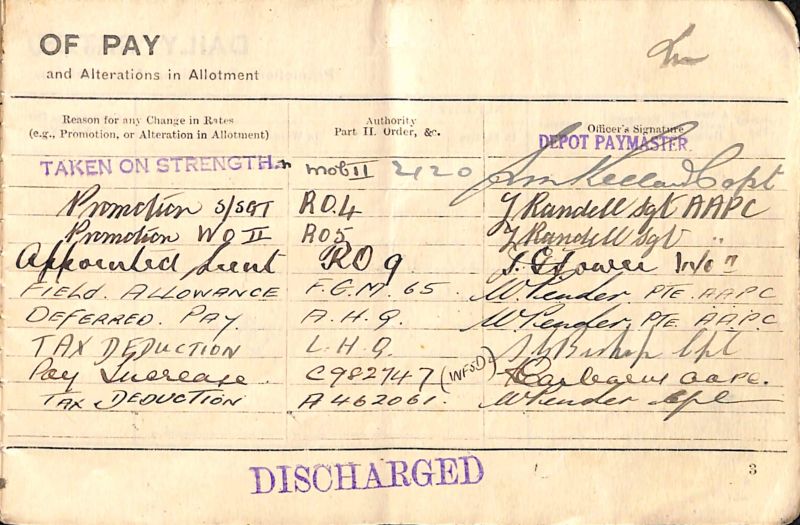 OF PAY
and Alterations in Allotment
Reason for any Change in Rates
(e.g., Promotion, or Alteration in Allotment)
Authority
Part II. Order, &c.
Officer's Signature
DEPOT PAYMASTER.
TAKEN ON STRENGTH. MOB II 2120 Capt
Promotion S/SGT RO.4 Randell Sgt AAPC
Promotion WO II RO5 Randell Sgt "
Appointed Lieut RO 9
FIELD. ALLOWANCE F.G.M. 65. W Pender PTE. AAPC
DEFERRED. PAY A.H.Q. W Pender, PTE. AAPC
TAX DEDUCTION L.H.Q. Bishop Cpl
Pay Increase. C982747 (INFSD) AAPC.
TAX DEDUCTION A462061. W Pender Cpl
DISCHARGED
3